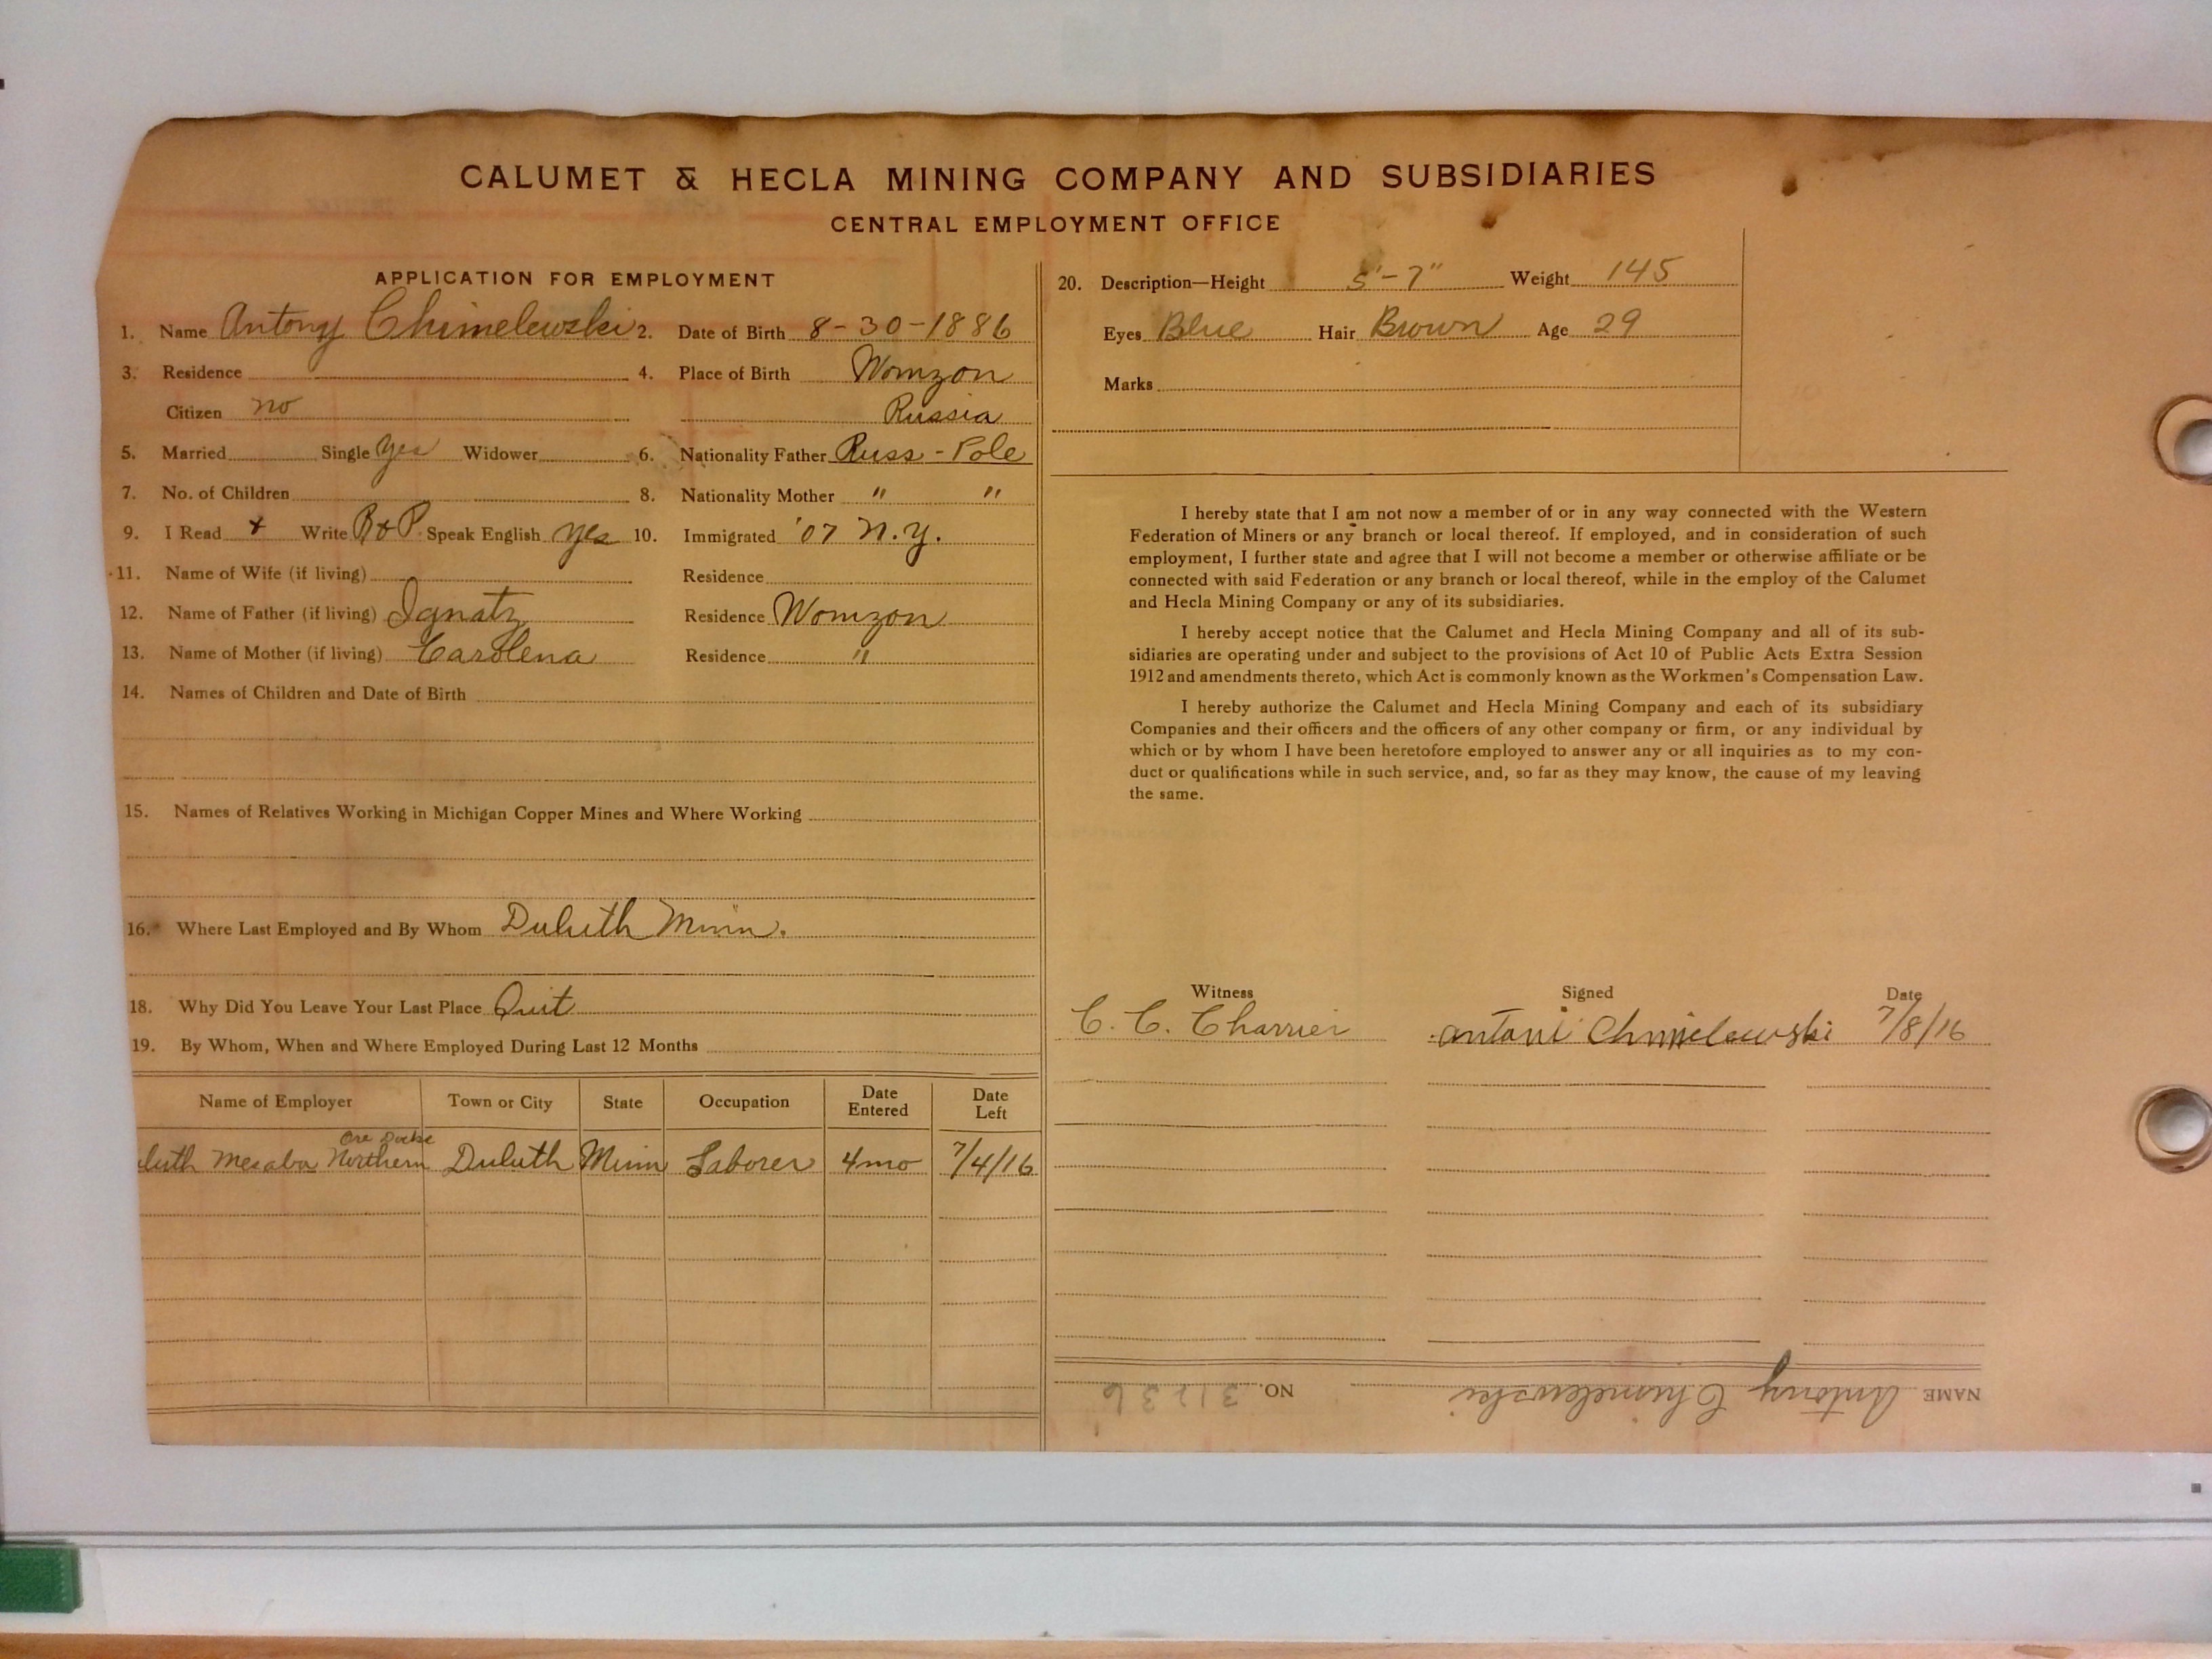 CALUMET & HECLA MINING COMPANY AND SUBSIDIARIES
CENTRAL EMPLOYMENT OFFICE
APPLICATION FOR EMPLOYMENT
1. Name Antony Chimelewski 2. Date of Birth 8-30-1886
3. Residence 4. Place of Birth Womzon
Citizen no Russia
5. Married Single yes Widower 6. Nationality Father Russ-Pole
7. No. of Children 8. Nationality Mother " "
9. I Read & Write R&P. Speak English yes 10. Immigrated '07 N.Y.
11. Name of Wife (if living) Residence
12. Name of Father (if living) Ignatz Residence Womzon
13. Name of Mother (if living) Carolena Residence "
14. Names of Children and Date of Birth
15. Names of Relatives Working in Michigan Copper Mines and Where Working
16. Where Last Employed and By Whom Duluth Minn.
18. Why Did You Leave Your Last Place Quit
19. By Whom, When and Where Employed During Last 12 Months
Name of Employer Town or City State Occupation Date Entered Date Left
Ore Docks
uluth Mesaba Northern Duluth Minn Laborer 4mo 7/4/16
20. Description—Height 5'-7" Weight 145
Eyes Blue Hair Brown Age 29
Marks
I hereby state that I am not now a member of or in any way connected with the Western
Federation of Miners or any branch or local thereof. If employed, and in consideration of such
employment, I further state and agree that I will not become a member or otherwise affiliate or be
connected with said Federation or any branch or local thereof, while in the employ of the Calumet
and Hecla Mining Company or any of its subsidiaries.
I hereby accept notice that the Calumet and Hecla Mining Company and all of its sub-
sidiaries are operating under and subject to the provisions of Act 10 of Public Acts Extra Session
1912 and amendments thereto, which Act is commonly known as the Workmen's Compensation Law.
I hereby authorize the Calumet and Hecla Mining Company and each of its subsidiary
Companies and their officers and the officers of any other company or firm, or any individual by
which or by whom I have been heretofore employed to answer any or all inquiries as to my con-
duct or qualifications while in such service, and, so far as they may know, the cause of my leaving
the same.
Witness Signed Date
C. C. Charrier antoni Chmielewski 7/8/16
NAME Antony Chimelewski NO. 31236